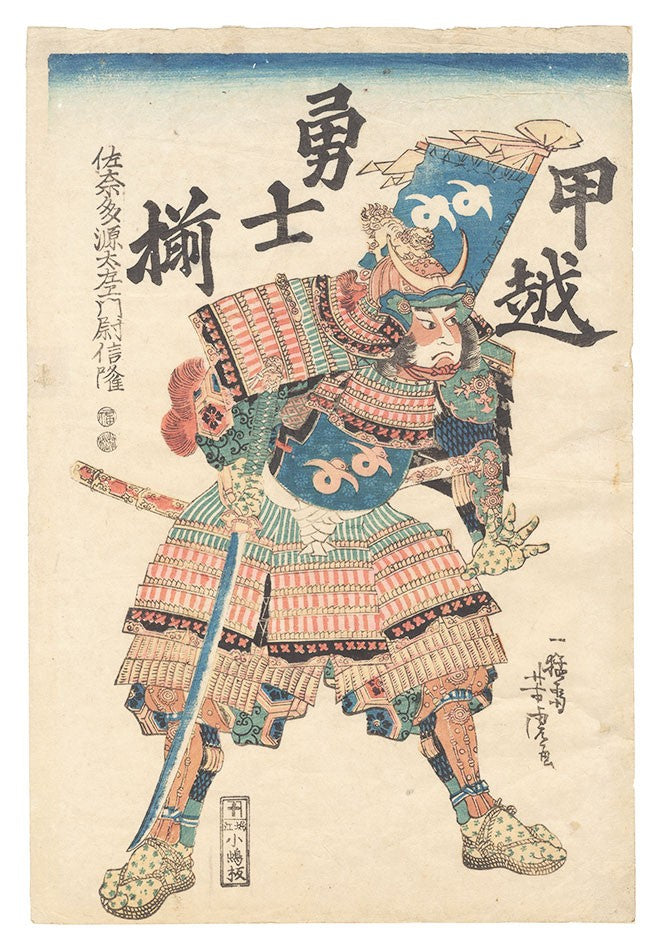 甲越
勇士
揃
佐奈多源太左エ門尉信隆
一猛斎
芳虎画
小嶋板